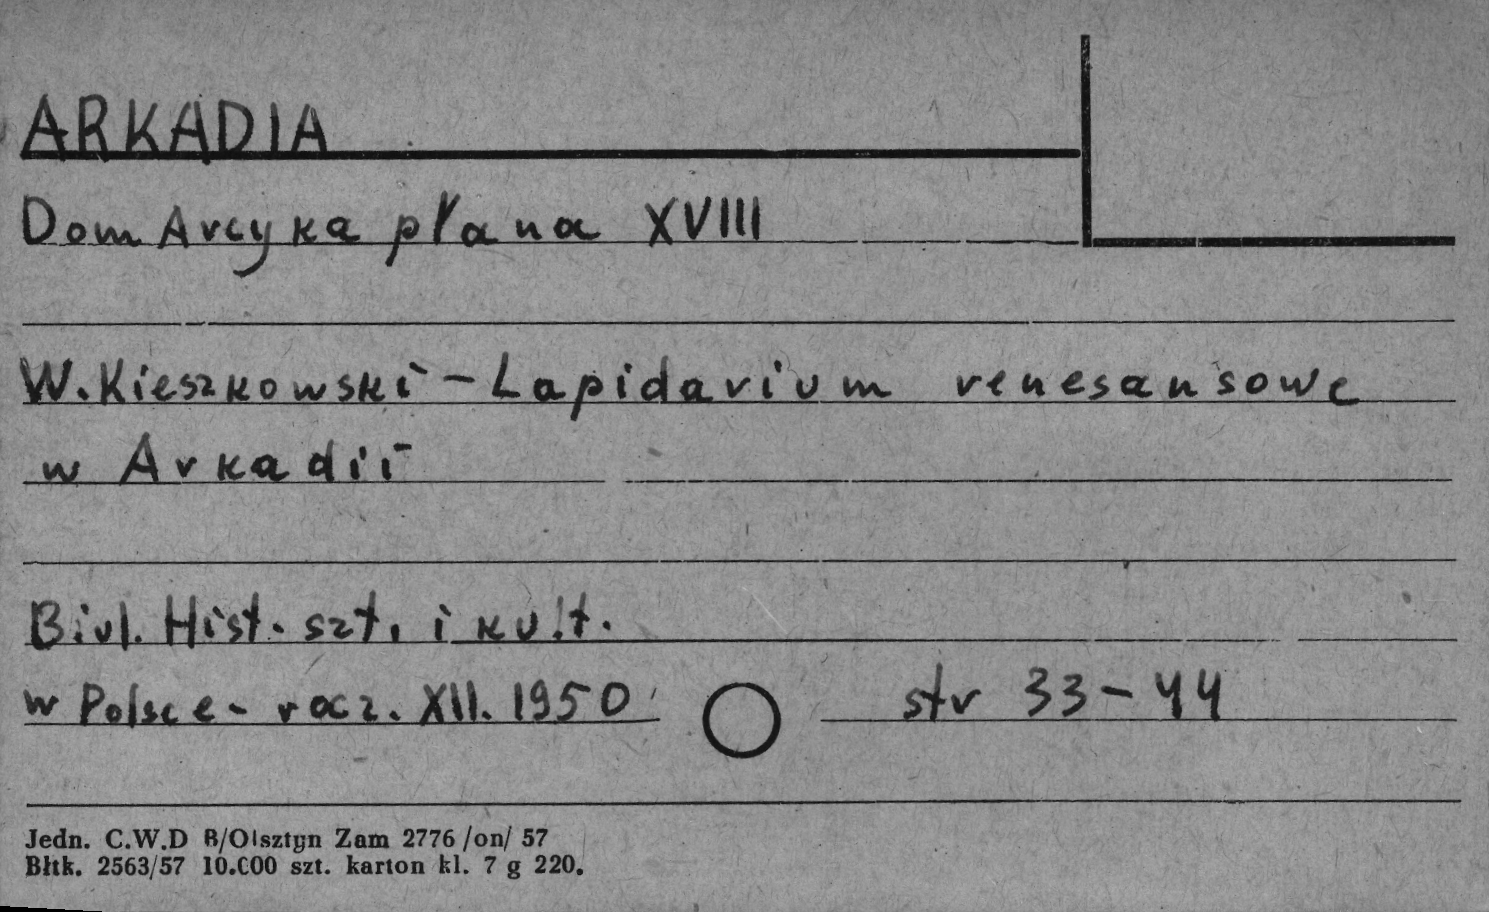 ARKADIA
Dom Arcykapłana XVIII
W. Kieszkowski - Lapidarium renesansowe
w Arkadii
Biul. Hist. szt. i kult.
w Polsce - rocz. XII. 1950
str 33-44
Jedn. C.W.D B/Olsztyn Zam 2776 /on/ 57
Błtk. 2563/57 10.000 szt. karton kl. 7 g 220.